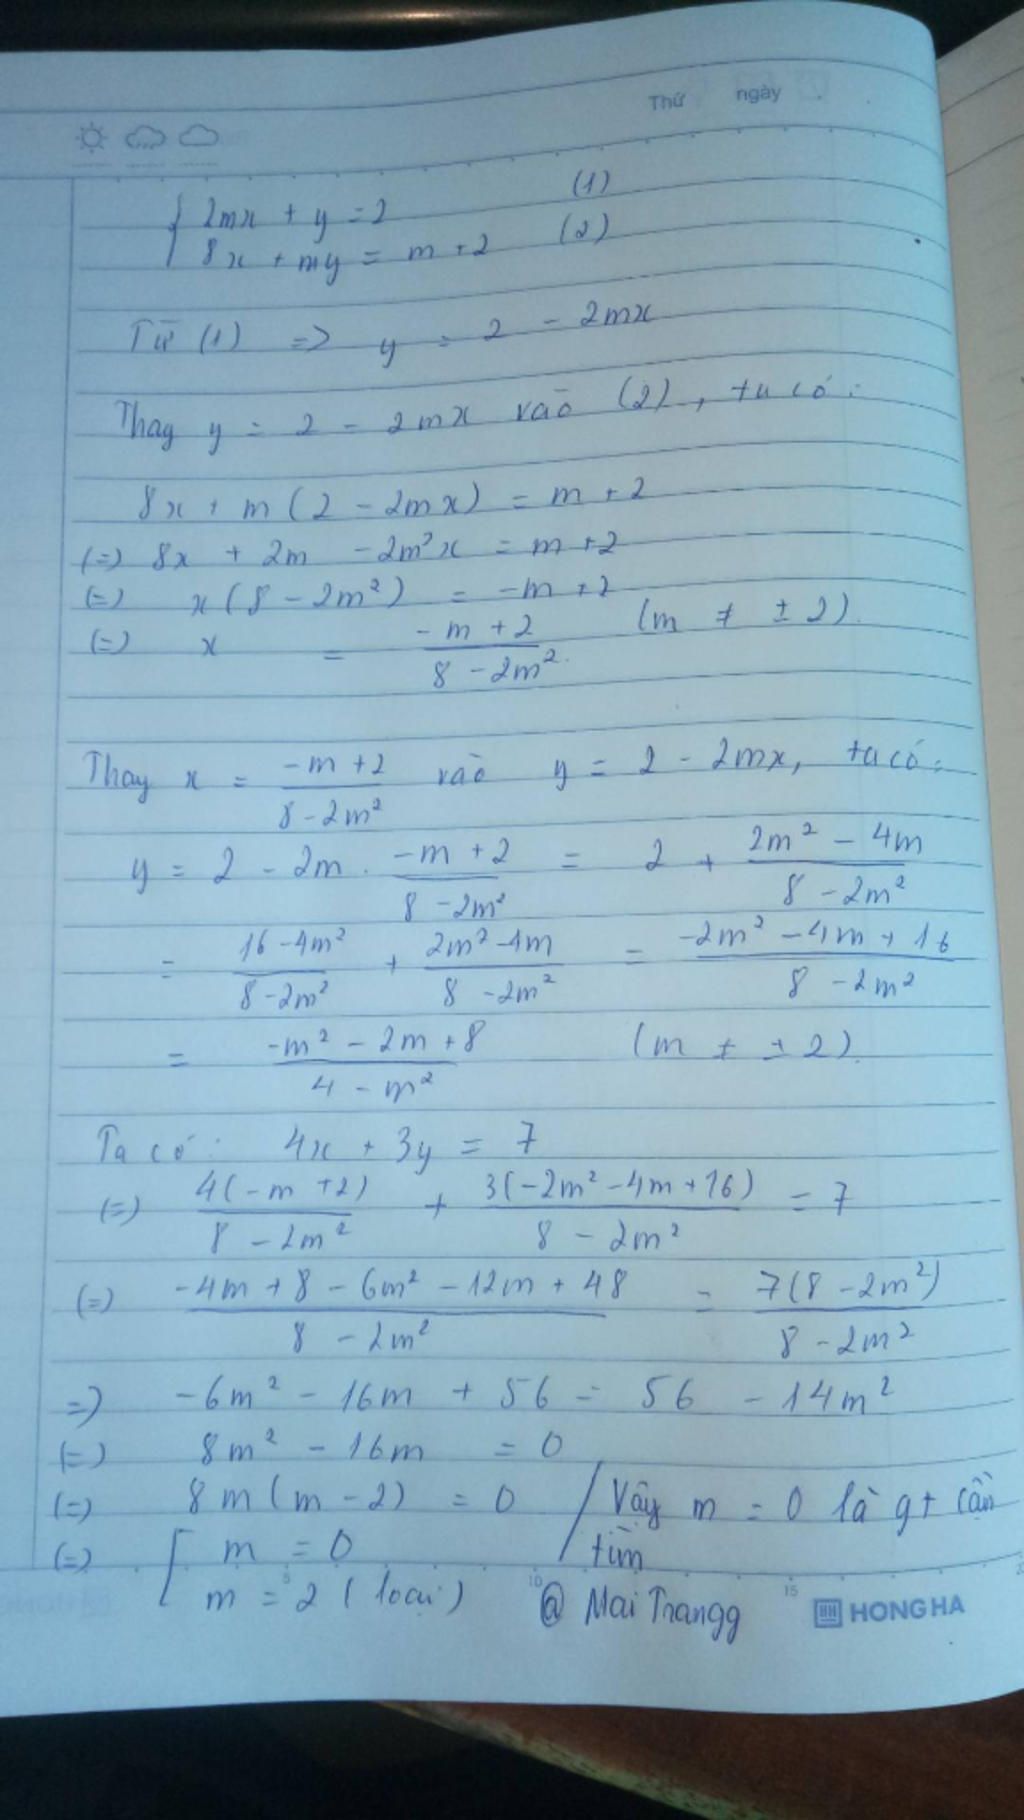 Thứ ngày
{ 2mx + y = 2 (1)
8x + my = m + 2 (2)
Từ (1) => y = 2 - 2mx
Thay y = 2 - 2mx vào (2), ta có:
8x + m(2 - 2mx) = m + 2
(=) 8x + 2m - 2m²x = m + 2
(=) x(8 - 2m²) = -m + 2
(=) x = (-m + 2)/(8 - 2m²) (m ≠ ± 2).
Thay x = (-m + 2)/(8 - 2m²) vào y = 2 - 2mx, ta có:
y = 2 - 2m . (-m + 2)/(8 - 2m²) = 2 + (2m² - 4m)/(8 - 2m²)
= (16 - 4m²)/(8 - 2m²) + (2m² - 4m)/(8 - 2m²) = (-2m² - 4m + 16)/(8 - 2m²)
= (-m² - 2m + 8)/(4 - m²) (m ≠ ± 2).
Ta có: 4x + 3y = 7
(=) 4(-m + 2)/(8 - 2m²) + 3(-2m² - 4m + 16)/(8 - 2m²) = 7
(=) (-4m + 8 - 6m² - 12m + 48)/(8 - 2m²) = 7(8 - 2m²)/(8 - 2m²)
=) -6m² - 16m + 56 = 56 - 14m²
(=) 8m² - 16m = 0
(=) 8m(m - 2) = 0 / Vậy m = 0 là gt cần
(=) [ m = 0 / tìm
m = 2 (loại) @ Mai Trangg
10 15
HH HONG HA